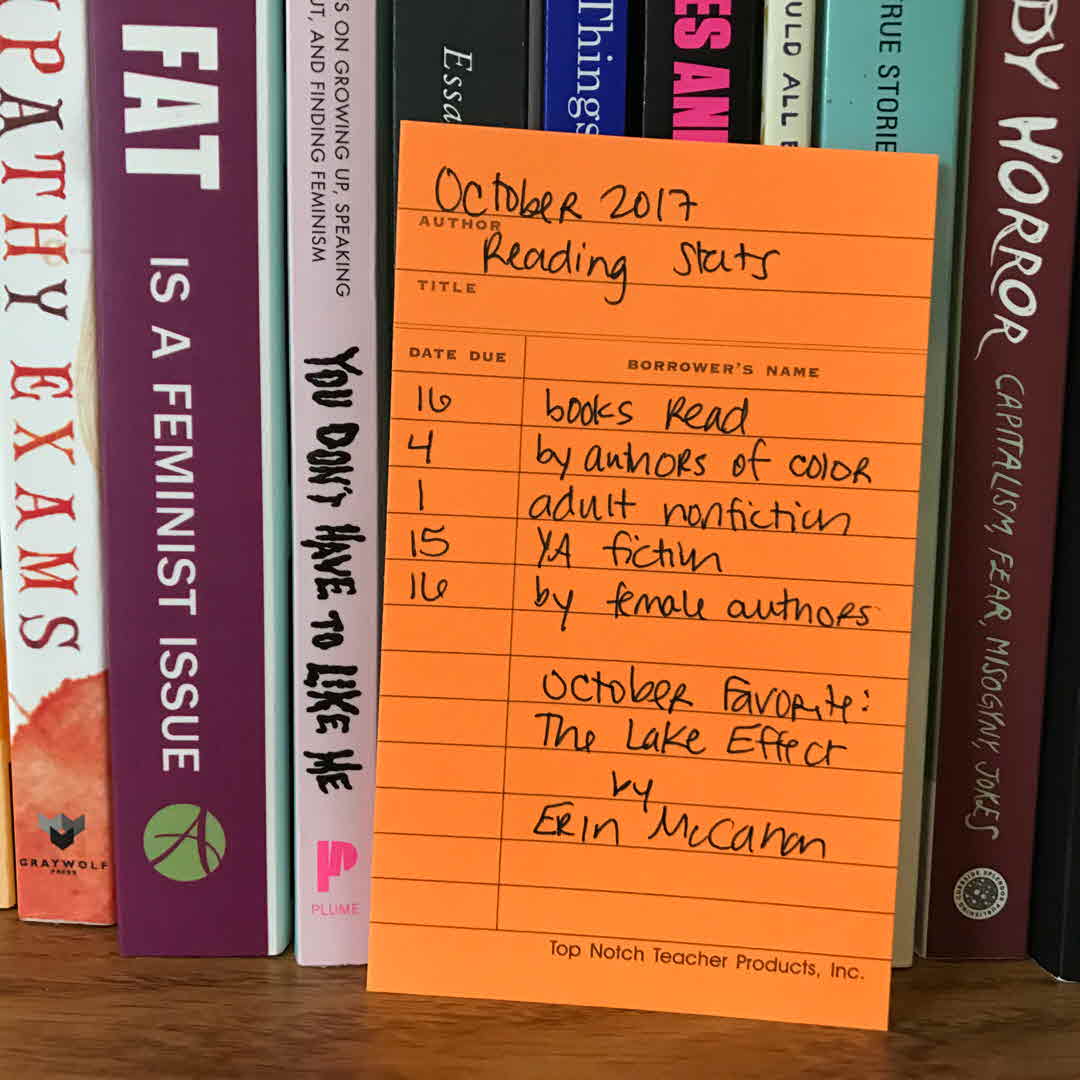 PATHY EXAMS
GRAYWOLF
PRESS
FAT IS A FEMINIST ISSUE
S ON GROWING UP, SPEAKING
UT, AND FINDING FEMINISM
YOU DON'T HAVE TO LIKE ME
PLUME
Essa
Things
ES AN
ULD ALL
TRUE STORIE
DY HORROR CAPITALISM, FEAR, MISOGYNY, JOKES
CURBSIDE SPLENDOR PUBLISHING
October 2017
AUTHOR
Reading Stats
TITLE
DATE DUE BORROWER'S NAME
16 books Read
4 by authors of color
1 adult nonfiction
15 YA fiction
16 by female authors
October Favorite:
The Lake Effect
by
Erin McCahan
Top Notch Teacher Products, Inc.